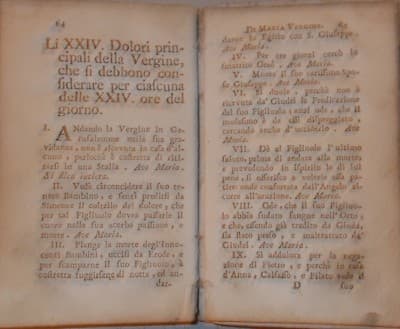 64
Li XXIV. Dolori prin-
cipali della Vergine,
che si debbono con-
siderare per ciascuna
delle XXIV. ore del
giorno.
I. ANdando la Vergine in Ge-
rusalemme nella sua gra-
vidanza, non è ricevuta in casa d'al-
cuno, perlochè è costretta di riti-
rarsi in una Stalla. Ave Maria.
Si dica intiera.
II. Vuol circoncidere il suo te-
nero Bambino, e sente predirsi da
Simeone il coltello del dolore, che
per tal Figliuolo dovea passarle il
cuore nella sua acerba passione, e
morte. Ave Maria.
III. Piange la morte degl'Inno-
centi Bambini, uccisi da Erode, e
per scamparne il suo Figliuolo, è
costretta fuggirsene di notte, ed an-
dar-
DI MARIA VERGINE.
darne in Egitto con S. Giuseppe.
Ave Maria.
IV. Per tre giorni cercò lo
smarrito Gesù. Ave Maria.
V. Muore il suo carissimo Spo-
so Giuseppe. Ave Maria.
VI. Si duole, perchè non è
ricevuta da' Giudei la Predicazione
del suo Figliuolo; anzi ode, che il
medesimo è da essi dispreggiato,
cercando anche d'ucciderlo. Ave
Maria.
VII. Dà al Figliuolo l'ultimo
saluto, prima di andare alla morte,
e prevedendo in ispirito le di lui
pene, si offerisce a volerlo alla pa-
ri confortata dall'Angelo di
orare all'orazione. Ave Maria.
VIII. Ode, che il suo Figliuo-
lo abbia sudato sangue nell'Orto,
e che, essendo già tradito da Giuda,
sia stato preso, e maltrattato da'
Giudei. Ave Maria.
IX. Si addolora per la nega-
zione di Pietro, e perchè in casa
d'Anna, Caifasso, e Pilato vede il
D suo